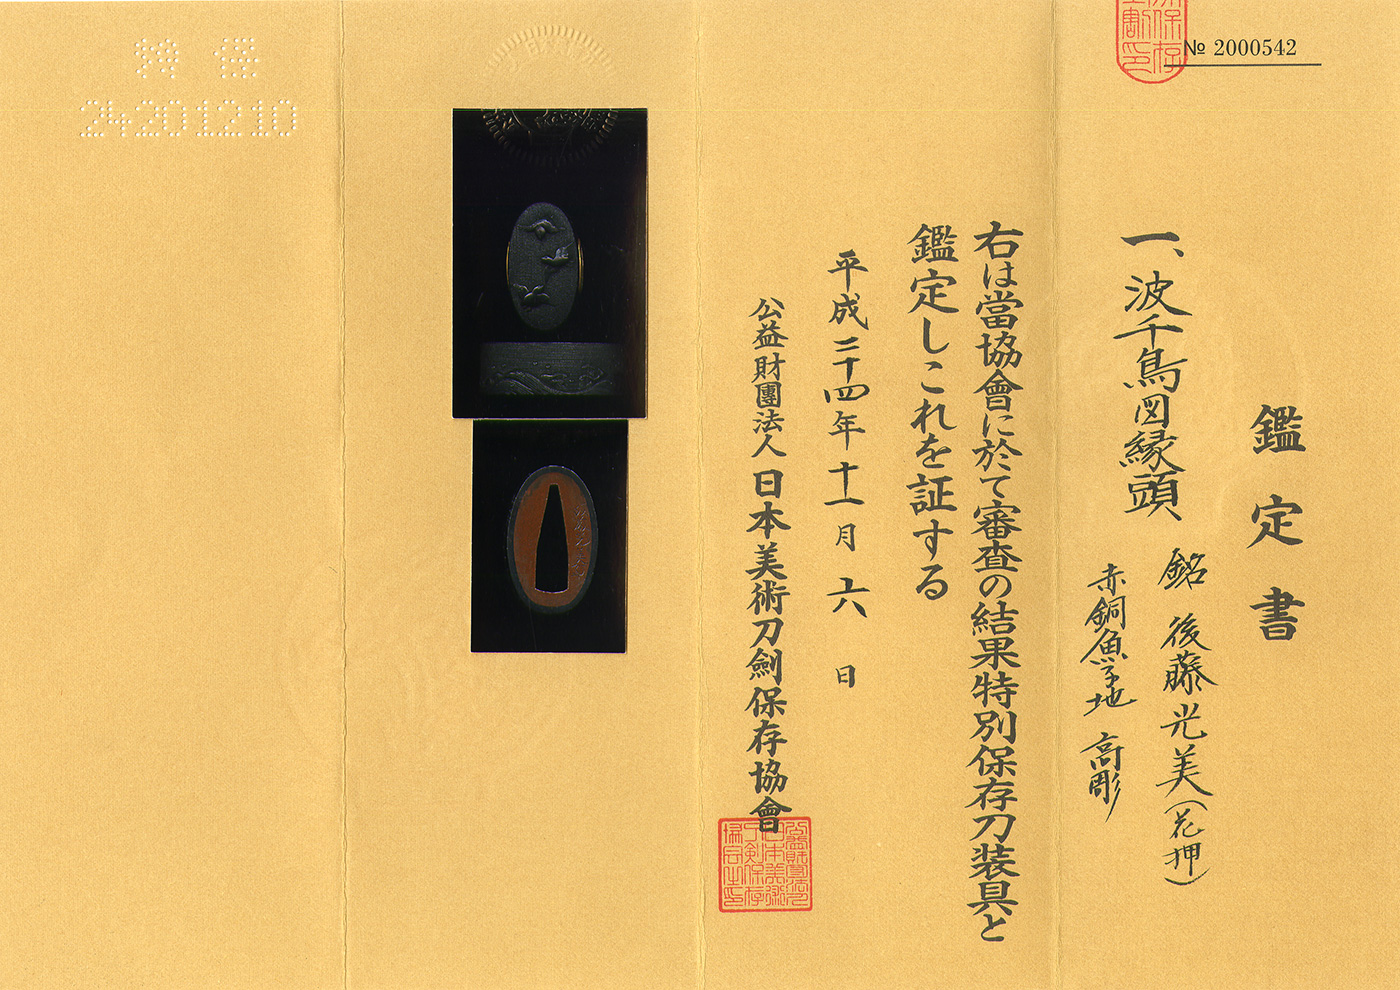 № 2000542
鑑定書
一、波千鳥図縁頭
銘 後藤光美(花押)
赤銅魚子地 高彫
右は當協會に於て審査の結果特別保存刀装具と
鑑定しこれを証する
平成二十四年十一月六日
公益財團法人日本美術刀劍保存協會
特保
24201210